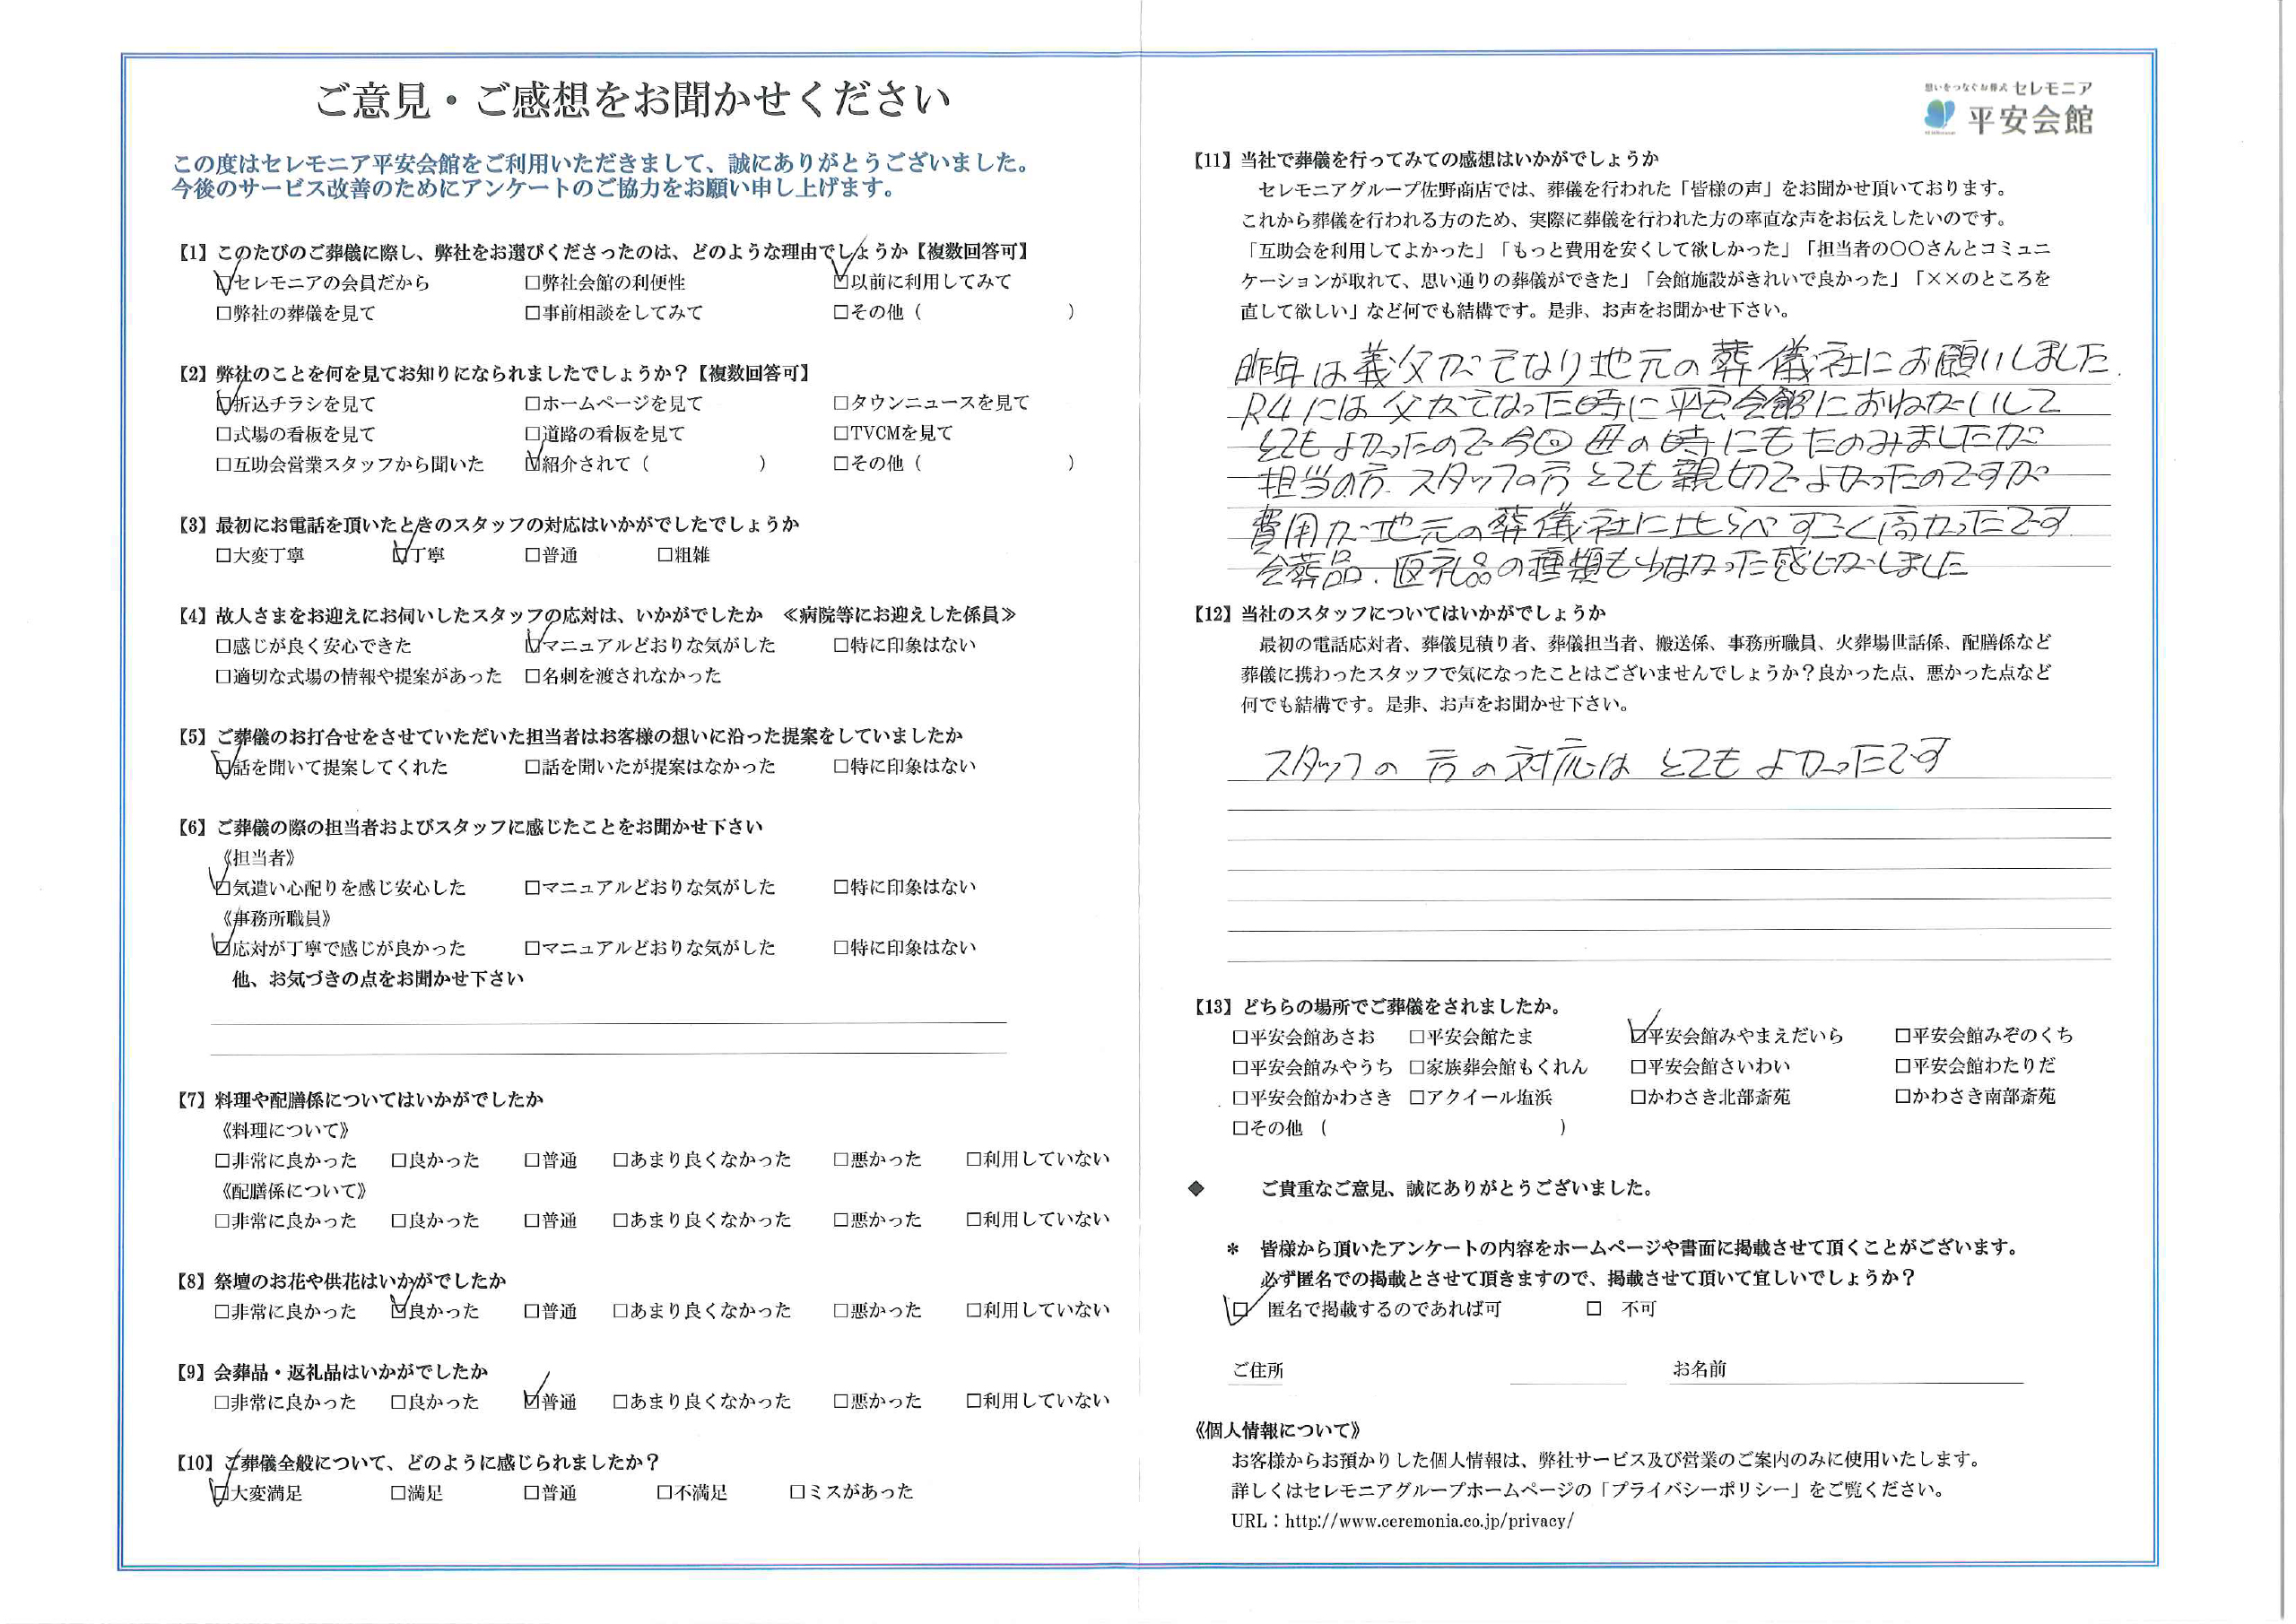 ご意見・ご感想をお聞かせください
この度はセレモニア平安会館をご利用いただきまして、誠にありがとうございました。
今後のサービス改善のためにアンケートのご協力をお願い申し上げます。
【1】このたびのご葬儀に際し、弊社をお選びくださったのは、どのような理由でしょうか【複数回答可】
☑セレモニアの会員だから □弊社会館の利便性 ☑以前に利用してみて
□弊社の葬儀を見て □事前相談をしてみて □その他（ ）
【2】弊社のことを何を見てお知りになられましたでしょうか？【複数回答可】
☑折込チラシを見て □ホームページを見て □タウンニュースを見て
□式場の看板を見て □道路の看板を見て □TVCMを見て
□互助会営業スタッフから聞いた ☑紹介されて（ ） □その他（ ）
【3】最初にお電話を頂いたときのスタッフの対応はいかがでしたでしょうか
□大変丁寧 ☑丁寧 □普通 □粗雑
【4】故人さまをお迎えにお伺いしたスタッフの応対は、いかがでしたか ≪病院等にお迎えした係員≫
□感じが良く安心できた ☑マニュアルどおりな気がした □特に印象はない
□適切な式場の情報や提案があった □名刺を渡されなかった
【5】ご葬儀のお打合せをさせていただいた担当者はお客様の想いに沿った提案をしていましたか
☑話を聞いて提案してくれた □話を聞いたが提案はなかった □特に印象はない
【6】ご葬儀の際の担当者およびスタッフに感じたことをお聞かせ下さい
《担当者》
☑気遣い心配りを感じ安心した □マニュアルどおりな気がした □特に印象はない
《事務所職員》
☑応対が丁寧で感じが良かった □マニュアルどおりな気がした □特に印象はない
他、お気づきの点をお聞かせ下さい
【7】料理や配膳係についてはいかがでしたか
《料理について》
□非常に良かった □良かった □普通 □あまり良くなかった □悪かった □利用していない
《配膳係について》
□非常に良かった □良かった □普通 □あまり良くなかった □悪かった □利用していない
【8】祭壇のお花や供花はいかがでしたか
□非常に良かった ☑良かった □普通 □あまり良くなかった □悪かった □利用していない
【9】会葬品・返礼品はいかがでしたか
□非常に良かった □良かった ☑普通 □あまり良くなかった □悪かった □利用していない
【10】ご葬儀全般について、どのように感じられましたか？
☑大変満足 □満足 □普通 □不満足 □ミスがあった
想いをつなぐお葬式 セレモニア
平安会館
【11】当社で葬儀を行ってみての感想はいかがでしょうか
セレモニアグループ佐野商店では、葬儀を行われた「皆様の声」をお聞かせ頂いております。
これから葬儀を行われる方のため、実際に葬儀を行われた方の率直な声をお伝えしたいのです。
「互助会を利用してよかった」「もっと費用を安くして欲しかった」「担当者の〇〇さんとコミュニ
ケーションが取れて、思い通りの葬儀ができた」「会館施設がきれいで良かった」「××のところを
直して欲しい」など何でも結構です。是非、お声をお聞かせ下さい。
昨年は義父がてなり地元の葬儀社にお願いしました.
R4には父がてなった時に平安会館におねがいして
とてもよかったので今回母の時にもたのみましたが
担当の方.スタッフの方とても親切でよかったのですが
費用が地元の葬儀社に比らべすごく高かったです
会葬品.返礼品の種類も少なかった感じがしました
【12】当社のスタッフについてはいかがでしょうか
最初の電話応対者、葬儀見積り者、葬儀担当者、搬送係、事務所職員、火葬場世話係、配膳係など
葬儀に携わったスタッフで気になったことはございませんでしょうか？良かった点、悪かった点など
何でも結構です。是非、お声をお聞かせ下さい。
スタッフの方の対応はとてもよかったです
【13】どちらの場所でご葬儀をされましたか。
□平安会館あさお □平安会館たま ☑平安会館みやまえだいら □平安会館みぞのくち
□平安会館みやうち □家族葬会館もくれん □平安会館さいわい □平安会館わたりだ
□平安会館かわさき □アクイール塩浜 □かわさき北部斎苑 □かわさき南部斎苑
□その他（ ）
◆ ご貴重なご意見、誠にありがとうございました。
＊ 皆様から頂いたアンケートの内容をホームページや書面に掲載させて頂くことがございます。
必ず匿名での掲載とさせて頂きますので、掲載させて頂いて宜しいでしょうか？
☑ 匿名で掲載するのであれば可 □ 不可
ご住所 お名前
《個人情報について》
お客様からお預かりした個人情報は、弊社サービス及び営業のご案内のみに使用いたします。
詳しくはセレモニアグループホームページの「プライバシーポリシー」をご覧ください。
URL：http://www.ceremonia.co.jp/privacy/